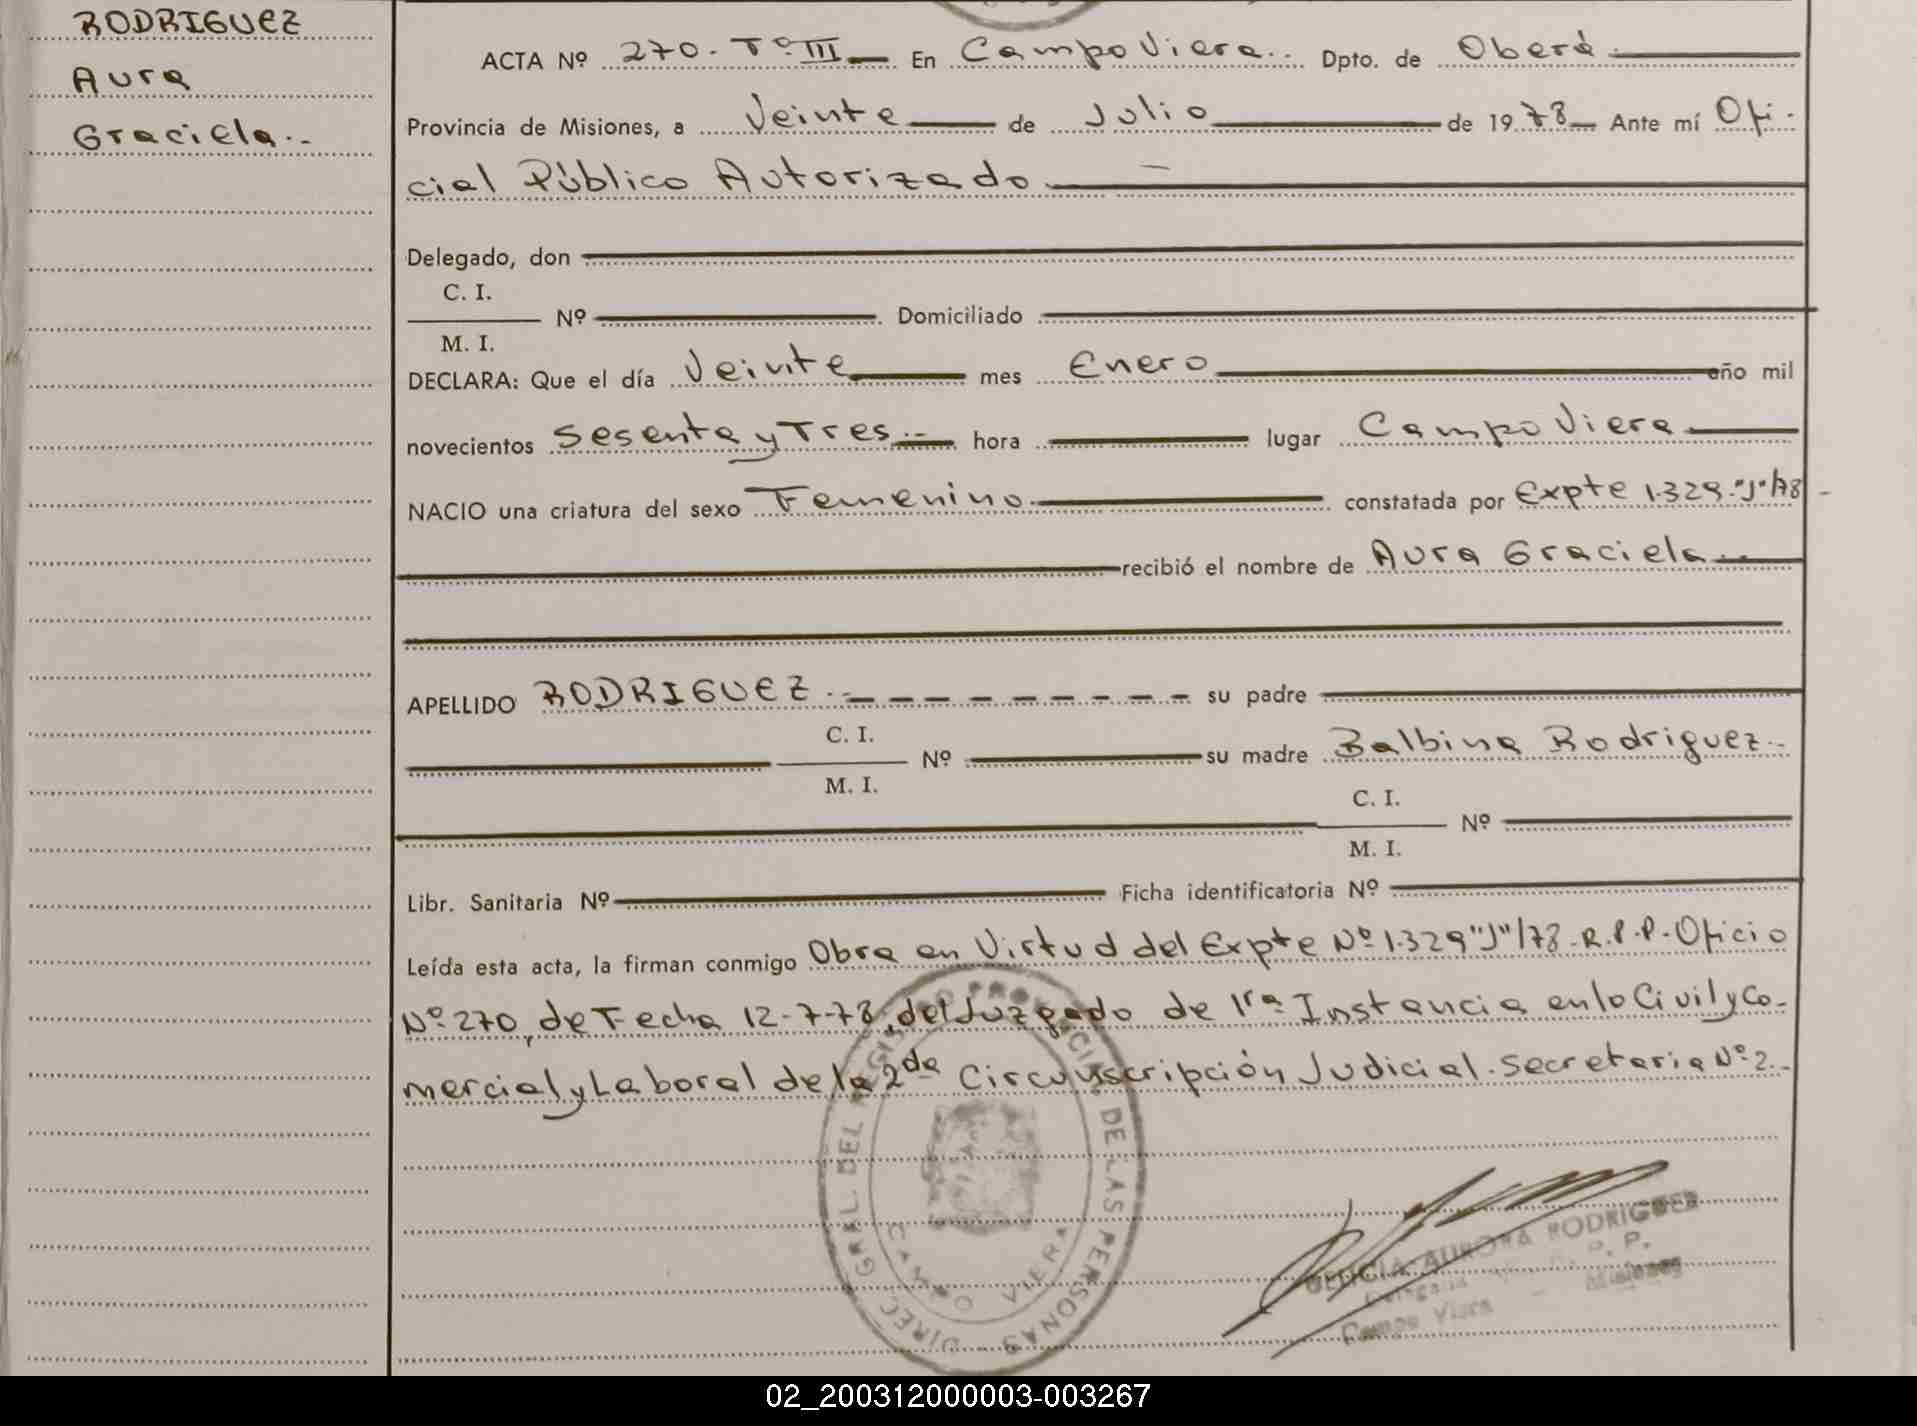 RODRIGUEZ
Aura
Graciela.-
ACTA Nº 270. Tº. III En Campo Viera.. Dpto. de Oberá
Provincia de Misiones, a Veinte de Julio de 1978 Ante mí Ofi-
cial Público Autorizado
Delegado, don
C. I.
Nº Domiciliado
M. I.
DECLARA: Que el día Veinte mes Enero año mil
novecientos Sesenta y Tres.- hora lugar Campo Viera
NACIO una criatura del sexo Femenino constatada por Expte 1.329."J"/78-
recibió el nombre de Aura Graciela.-
APELLIDO RODRIGUEZ.- su padre
C. I.
Nº su madre Balbina Rodriguez.-
M. I.
C. I.
Nº
M. I.
Libr. Sanitaria Nº Ficha identificatoria Nº
Leída esta acta, la firman conmigo Obra en Virtud del Expte Nº 1.329"J"/78-R.P.P.Oficio
Nº 270, de Fecha 12-7-78, del Juzgado de 1ra Instancia en lo Civil y Co-
mercial y Laboral de la 2da Circunscripción Judicial. Secretaria Nº 2.-
DIREC. GRAL. DEL REGISTRO PROVINCIAL DE LAS PERSONAS
CAMPO VIERA
AURORA RODRIGUEZ
P. P.
Campo Viera - Misiones
02_200312000003-003267